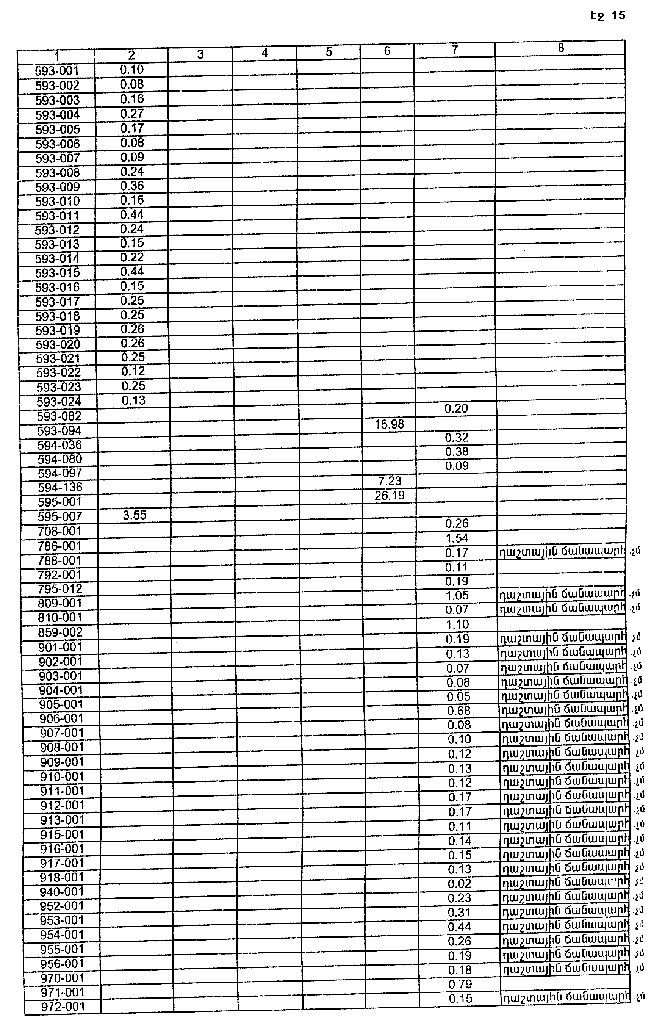 Էջ 15
1 2 3 4 5 6 7 8
593-001 0.10
593-002 0.08
593-003 0.16
593-004 0.27
593-005 0.17
593-006 0.08
593-007 0.09
593-008 0.24
593-009 0.36
593-010 0.16
593-011 0.44
593-012 0.24
593-013 0.15
593-014 0.22
593-015 0.44
593-016 0.15
593-017 0.25
593-018 0.25
593-019 0.26
593-020 0.26
593-021 0.25
593-022 0.12
593-023 0.25
593-024 0.13
593-082 0.20
593-094 15.98
594-036 0.32
594-080 0.38
594-097 0.09
594-136 7.23
595-001 26.19
595-007 3.55
708-001 0.26
786-001 1.54
788-001 0.17 դաշտային ճանապարհ
792-001 0.11
795-012 0.19
809-001 1.05 դաշտային ճանապարհ
810-001 0.07 դաշտային ճանապարհ
859-002 1.10
901-001 0.19 դաշտային ճանապարհ
902-001 0.13 դաշտային ճանապարհ
903-001 0.07 դաշտային ճանապարհ
904-001 0.08 դաշտային ճանապարհ
905-001 0.05 դաշտային ճանապարհ
906-001 0.68 դաշտային ճանապարհ
907-001 0.08 դաշտային ճանապարհ
908-001 0.10 դաշտային ճանապարհ
909-001 0.12 դաշտային ճանապարհ
910-001 0.13 դաշտային ճանապարհ
911-001 0.12 դաշտային ճանապարհ
912-001 0.17 դաշտային ճանապարհ
913-001 0.17 դաշտային ճանապարհ
915-001 0.11 դաշտային ճանապարհ
916-001 0.14 դաշտային ճանապարհ
917-001 0.15 դաշտային ճանապարհ
918-001 0.13 դաշտային ճանապարհ
940-001 0.02 դաշտային ճանապարհ
952-001 0.23 դաշտային ճանապարհ
953-001 0.31 դաշտային ճանապարհ
954-001 0.44 դաշտային ճանապարհ
955-001 0.26 դաշտային ճանապարհ
956-001 0.19 դաշտային ճանապարհ
970-001 0.18 դաշտային ճանապարհ
971-001 0.79
972-001 0.15 դաշտային ճանապարհ